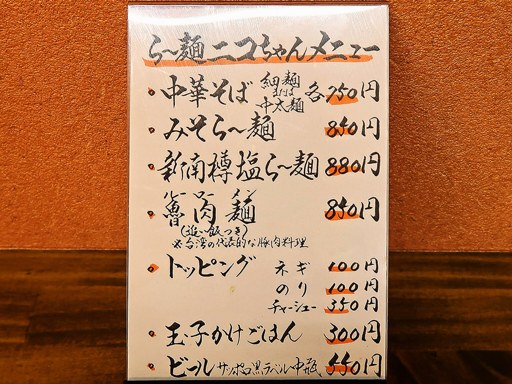 ら〜麺ニコちゃんメニュー
中華そば 細麺または中太麺 各750円
みそら〜麺 850円
新南樽塩ら〜麺 880円
ルーローメン
魯肉麺 850円
(追い飯つき)
※台湾の代表的な豚肉料理
トッピング ネギ 100円
のり 100円
チャーシュー 350円
玉子かけごはん 300円
ビール サッポロ黒ラベル中瓶 550円